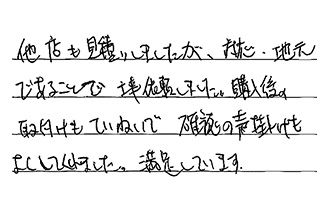 他店も見積りしましたが、対応・地元
であることで 依頼しました。購入後の
取付けもていねいで 確認の声掛けも
よくしてくれました。満足しています。